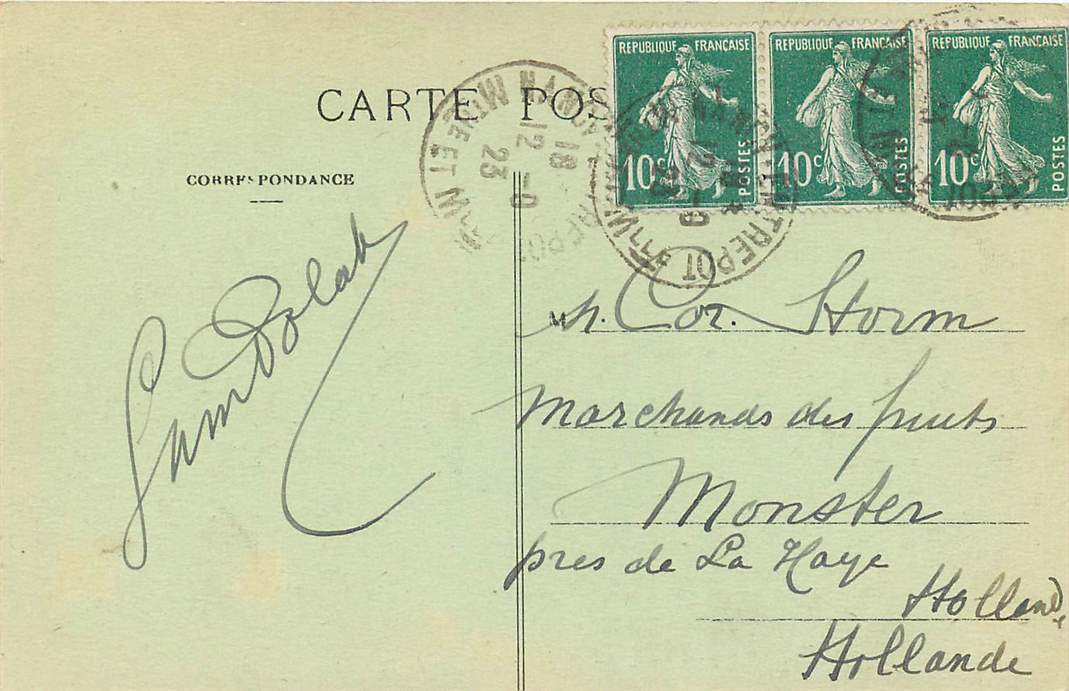 CARTE POS
REPUBLIQUE FRANÇAISE
10c POSTES
REPUBLIQUE FRANÇAISE
10c POSTES
REPUBLIQUE FRANÇAISE
10c POSTES
18
12 - 9
23
CORRESPONDANCE
Sam Polak
M
Cor. Storm
Marchands des fruits
Monster
pres de La Haye
Holland,
Hollande